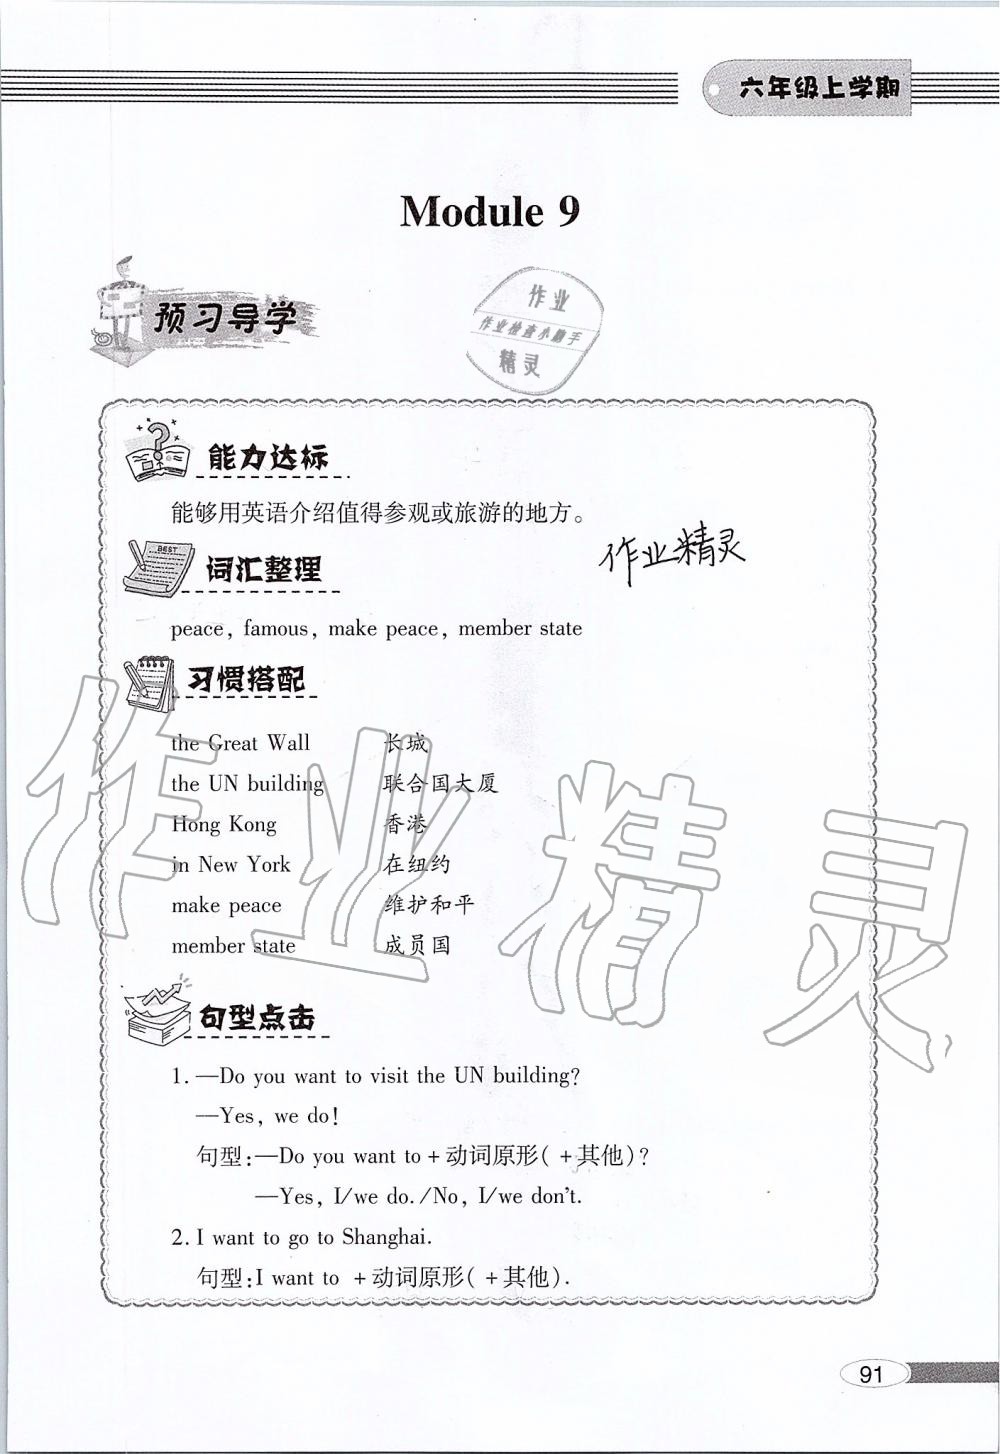 六年级上学期
Module 9
预习导学
作业
作业检查小助手
精灵
能力达标
能够用英语介绍值得参观或旅游的地方。
作业精灵
BEST
词汇整理
peace, famous, make peace, member state
习惯搭配
the Great Wall 长城
the UN building 联合国大厦
Hong Kong 香港
in New York 在纽约
make peace 维护和平
member state 成员国
作业精灵
句型点击
1. —Do you want to visit the UN building?
—Yes, we do!
句型:—Do you want to+动词原形(+其他)?
—Yes, I/we do./No, I/we don't.
2. I want to go to Shanghai.
句型:I want to +动词原形(+其他).
91